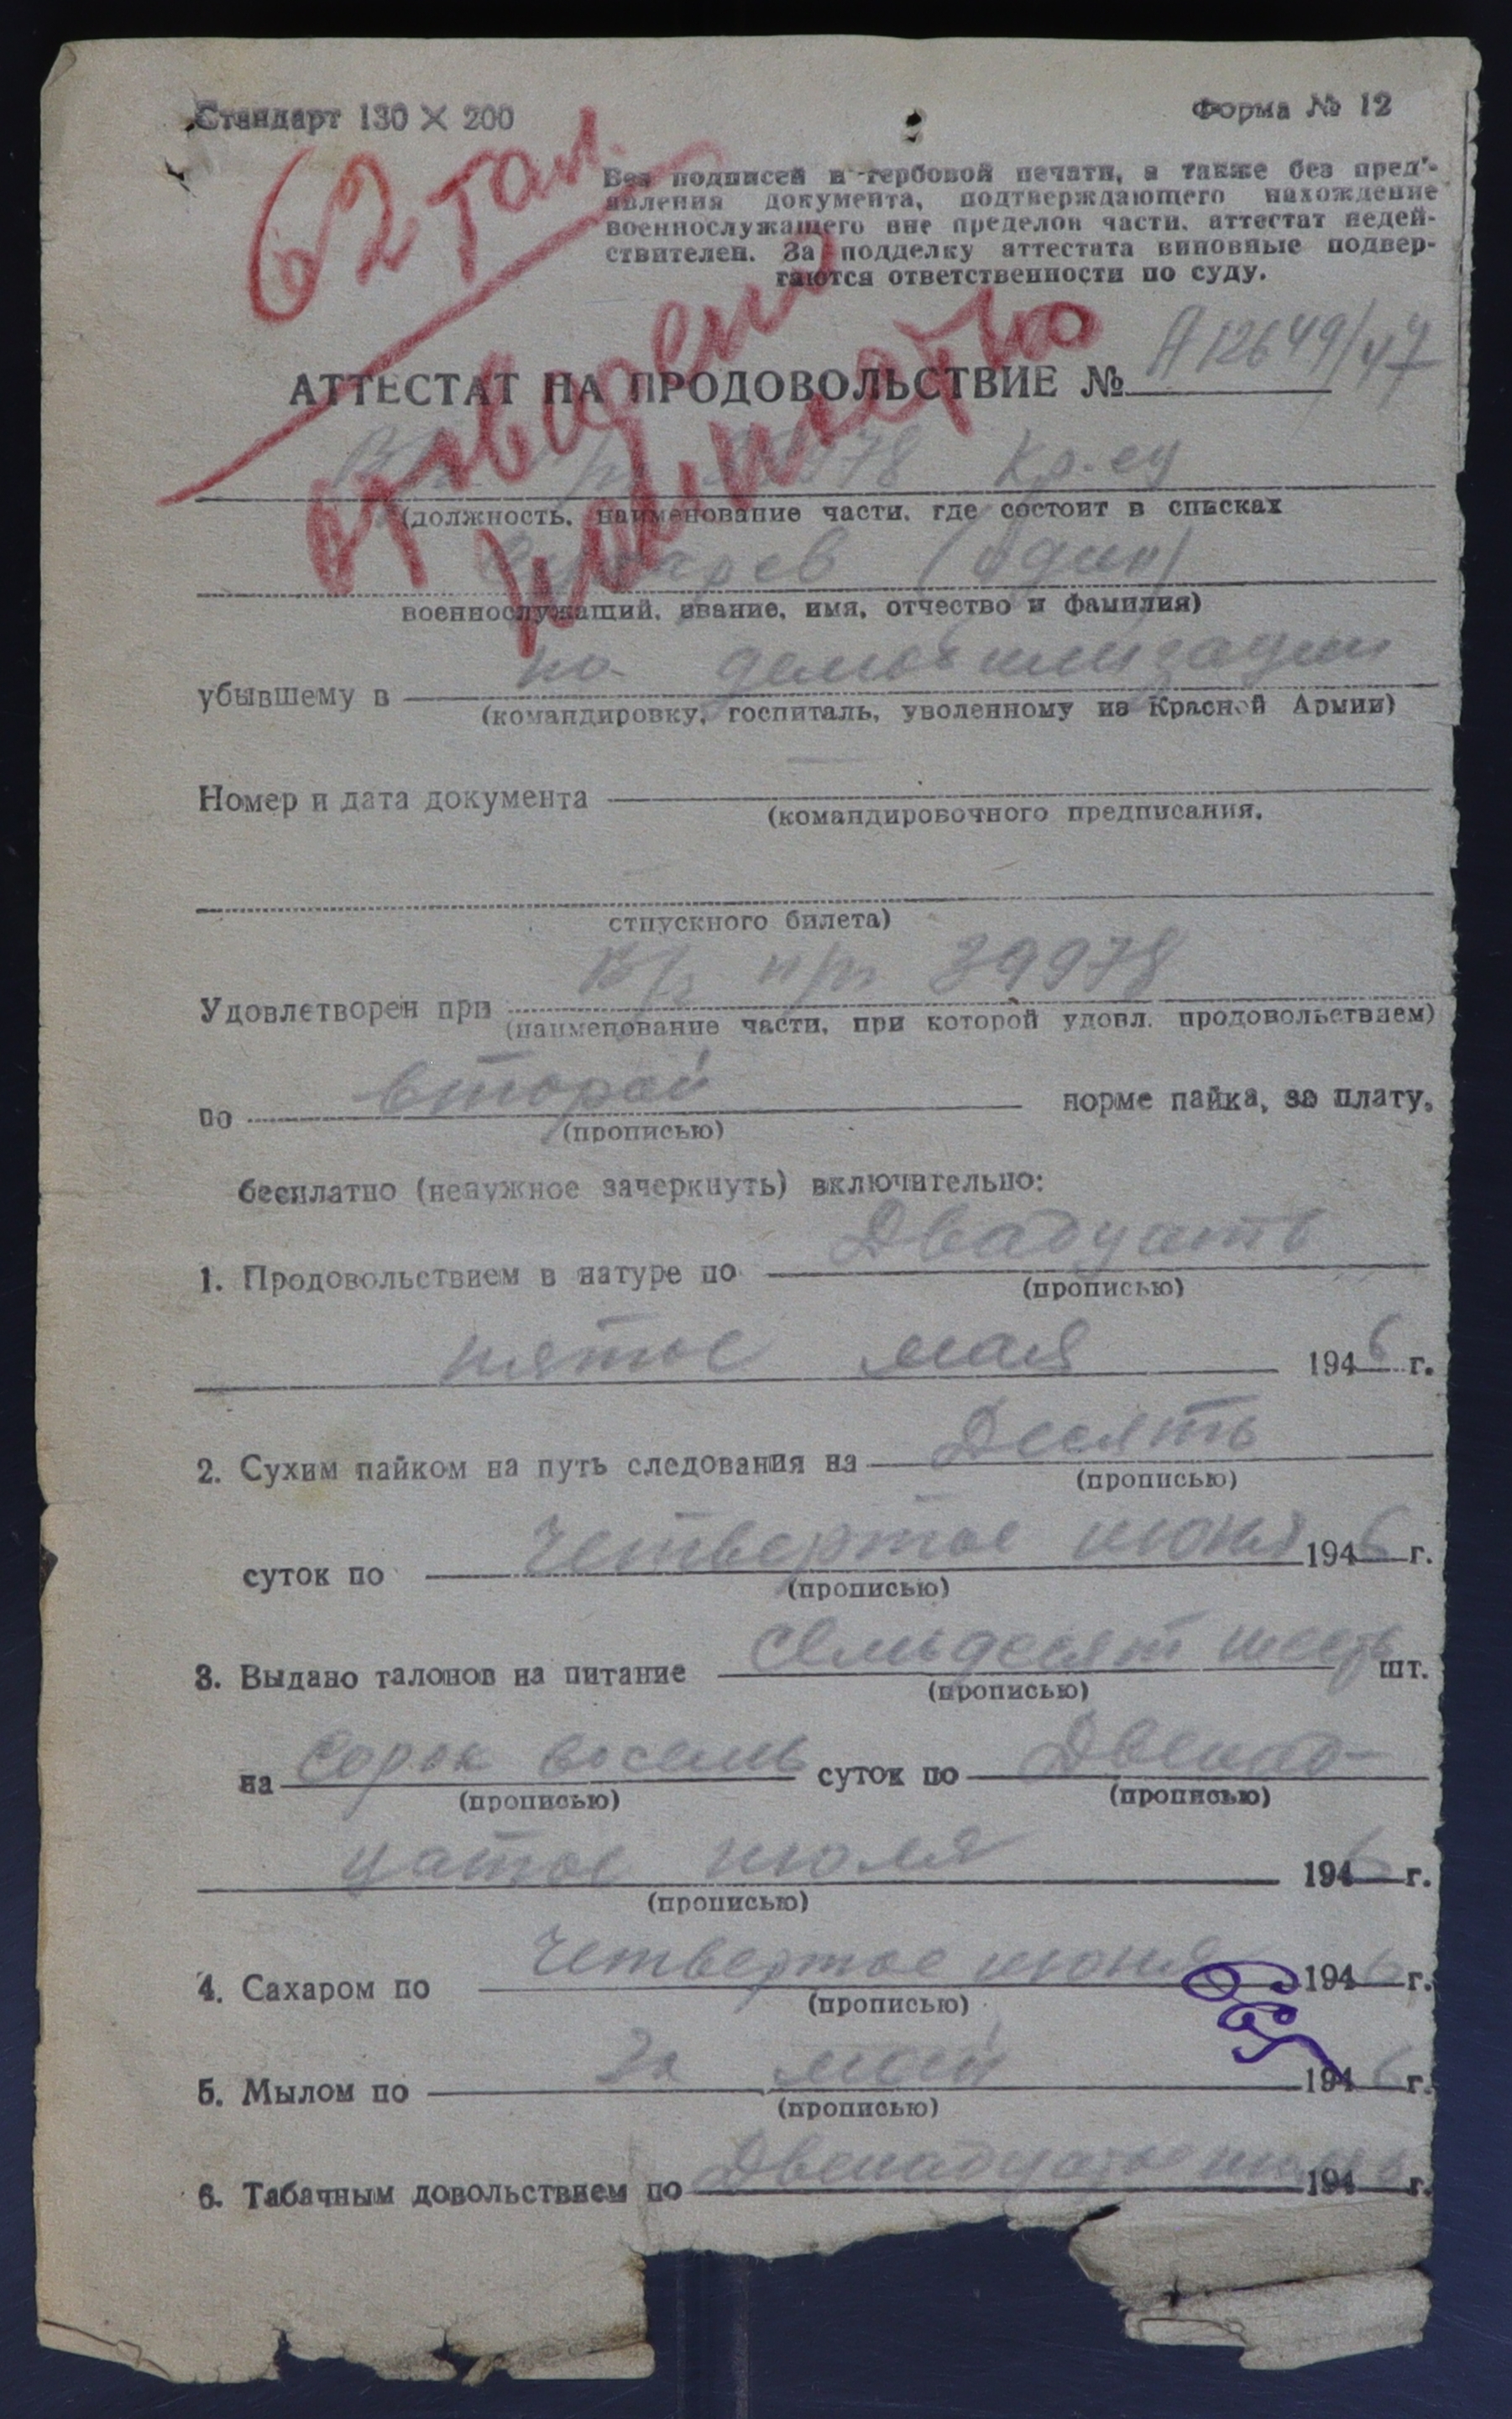 Стандарт 130 × 200
Форма № 12
62 тал.
Без подписей и гербовой печати, а также без пред'-
явления документа, подтверждающего нахождение
военнослужащего вне пределов части, аттестат недей-
ствителен. За подделку аттестата виновные подвер-
гаются ответственности по суду.
АТТЕСТАТ НА ПРОДОВОЛЬСТВИЕ № А12649/47
39978 кр-ец
(должность, наименование части, где состоит в списках
(Один)
военнослужащий, звание, имя, отчество и фамилия)
убывшему в по демобилизации
(командировку, госпиталь, уволенному из Красной Армии)
Номер и дата документа
(командировочного предписания,
отпускного билета)
Удовлетворен при В/ч п/п 39978
(наименование части, при которой удовл. продовольствием)
по второй норме пайка, за плату,
(прописью)
бесплатно (ненужное зачеркнуть) включительно:
1. Продовольствием в натуре по Двадцать
(прописью)
пятое мая 1946 г.
2. Сухим пайком на путь следования на Десять
(прописью)
суток по Четвертое июня 1946 г.
(прописью)
3. Выдано талонов на питание семьдесят шесть шт.
(прописью)
на Сорок восемь суток по Двенад-
(прописью) (прописью)
цатое июля 1946 г.
(прописью)
4. Сахаром по Четвертое июня 1946 г.
(прописью)
5. Мылом по За май 1946 г.
(прописью)
6. Табачным довольствием по Двенадцатое июля 1946 г.